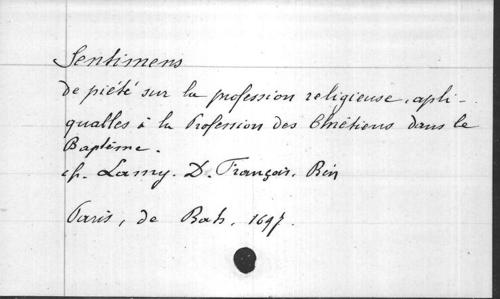 Sentimens
de piété sur la profession religieuse, apli-
quables à la Profession des Chrétiens dans le
Baptème.
cf. Lamy. D. François. Bén
Paris, de Bats, 1697.